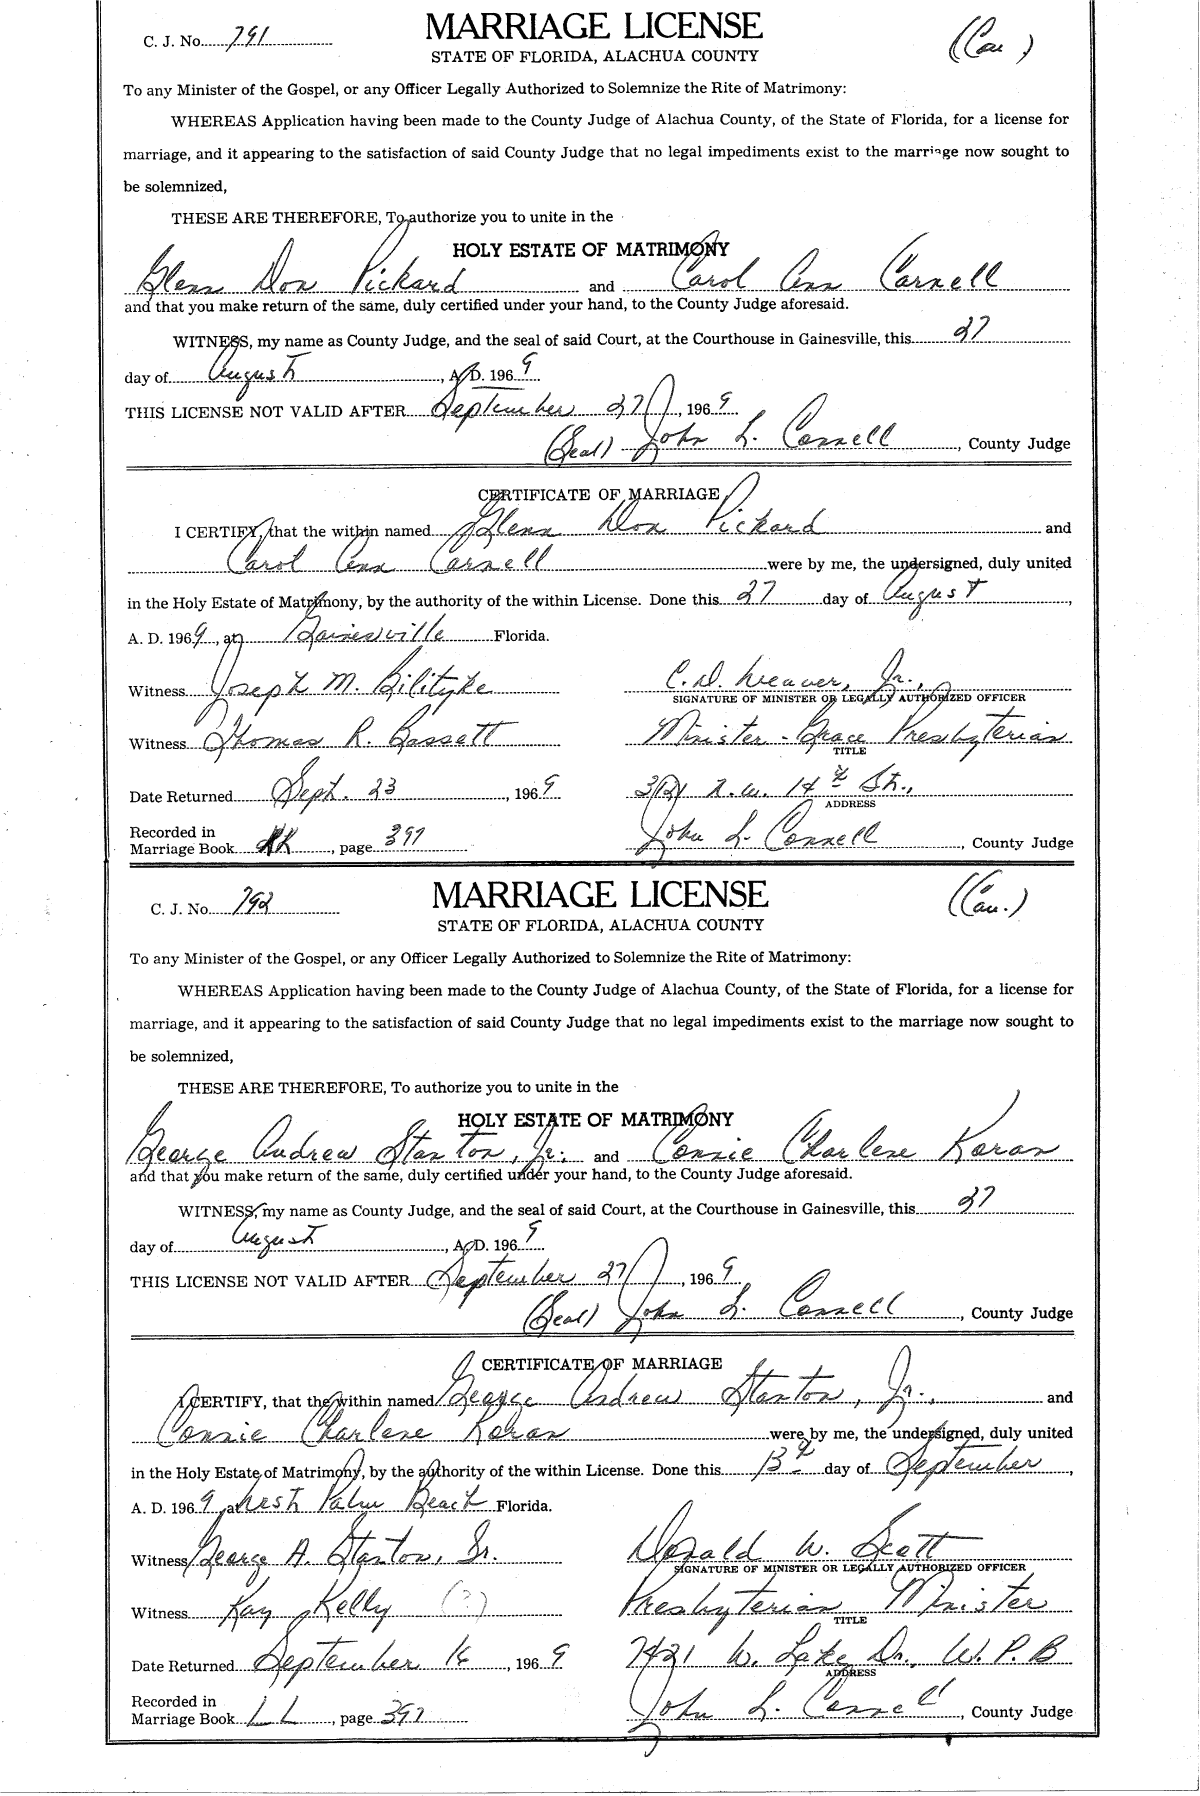 C. J. No. 791
MARRIAGE LICENSE
(Cau )
STATE OF FLORIDA, ALACHUA COUNTY
To any Minister of the Gospel, or any Officer Legally Authorized to Solemnize the Rite of Matrimony:
WHEREAS Application having been made to the County Judge of Alachua County, of the State of Florida, for a license for
marriage, and it appearing to the satisfaction of said County Judge that no legal impediments exist to the marriage now sought to
be solemnized,
THESE ARE THEREFORE, To authorize you to unite in the
HOLY ESTATE OF MATRIMONY
Glenn Don Pickard and Carol Ann Carnell
and that you make return of the same, duly certified under your hand, to the County Judge aforesaid.
WITNESS, my name as County Judge, and the seal of said Court, at the Courthouse in Gainesville, this 27
day of August, A. D. 1969
THIS LICENSE NOT VALID AFTER September 27, 1969
(Seal) John L. Connell, County Judge
CERTIFICATE OF MARRIAGE
I CERTIFY, that the within named Glenn Don Pickard and
Carol Ann Carnell were by me, the undersigned, duly united
in the Holy Estate of Matrimony, by the authority of the within License. Done this 27 day of August,
A. D. 1969, at Gainesville Florida.
Witness Joseph M. C. D. Weaver, Jr.,
SIGNATURE OF MINISTER OR LEGALLY AUTHORIZED OFFICER
Witness Thomas R. Bassett Minister - Grace Presbyterian
TITLE
Date Returned Sept. 23, 1969 3121 N.W. 14th St.,
ADDRESS
Recorded in
Marriage Book , page 397 John L. Connell, County Judge
C. J. No. 792
MARRIAGE LICENSE
(Cau.)
STATE OF FLORIDA, ALACHUA COUNTY
To any Minister of the Gospel, or any Officer Legally Authorized to Solemnize the Rite of Matrimony:
WHEREAS Application having been made to the County Judge of Alachua County, of the State of Florida, for a license for
marriage, and it appearing to the satisfaction of said County Judge that no legal impediments exist to the marriage now sought to
be solemnized,
THESE ARE THEREFORE, To authorize you to unite in the
HOLY ESTATE OF MATRIMONY
George Andrew Stanton, Jr. and Connie Charlene Koran
and that you make return of the same, duly certified under your hand, to the County Judge aforesaid.
WITNESS, my name as County Judge, and the seal of said Court, at the Courthouse in Gainesville, this 27
day of August, A. D. 1969
THIS LICENSE NOT VALID AFTER September 27, 1969
(Seal) John L. Connell, County Judge
CERTIFICATE OF MARRIAGE
I CERTIFY, that the within named George Andrew Stanton, Jr., and
Connie Charlene Koran were by me, the undersigned, duly united
in the Holy Estate of Matrimony, by the authority of the within License. Done this 13th day of September,
A. D. 1969, at West Palm Beach Florida.
Witness George A. Stanton, Sr. Donald W. Scott
SIGNATURE OF MINISTER OR LEGALLY AUTHORIZED OFFICER
Witness Kay Kelly (?) Presbyterian Minister
TITLE
Date Returned September 16, 1969 7421 W. Lake Dr., W. P. B
ADDRESS
Recorded in
Marriage Book LL, page 397 John L. Connell, County Judge